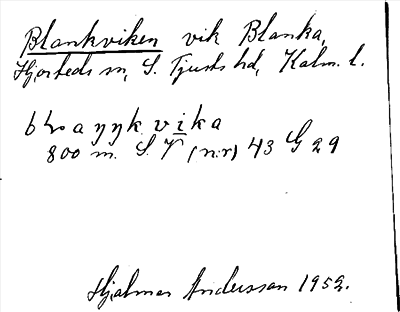 Blankviken vik Blanka,
Hjorteds sn, S. Tjusts hd, Kalm. l.
vika
800 m. S. V (nr) 43 G 29
Hjalmar Andersson 1952.